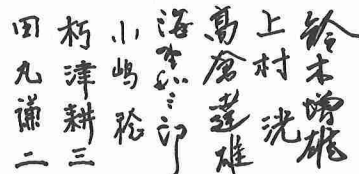 鈴木増雄
上村洸
高倉達雄
小嶋稔
朽津耕三
田丸謙二